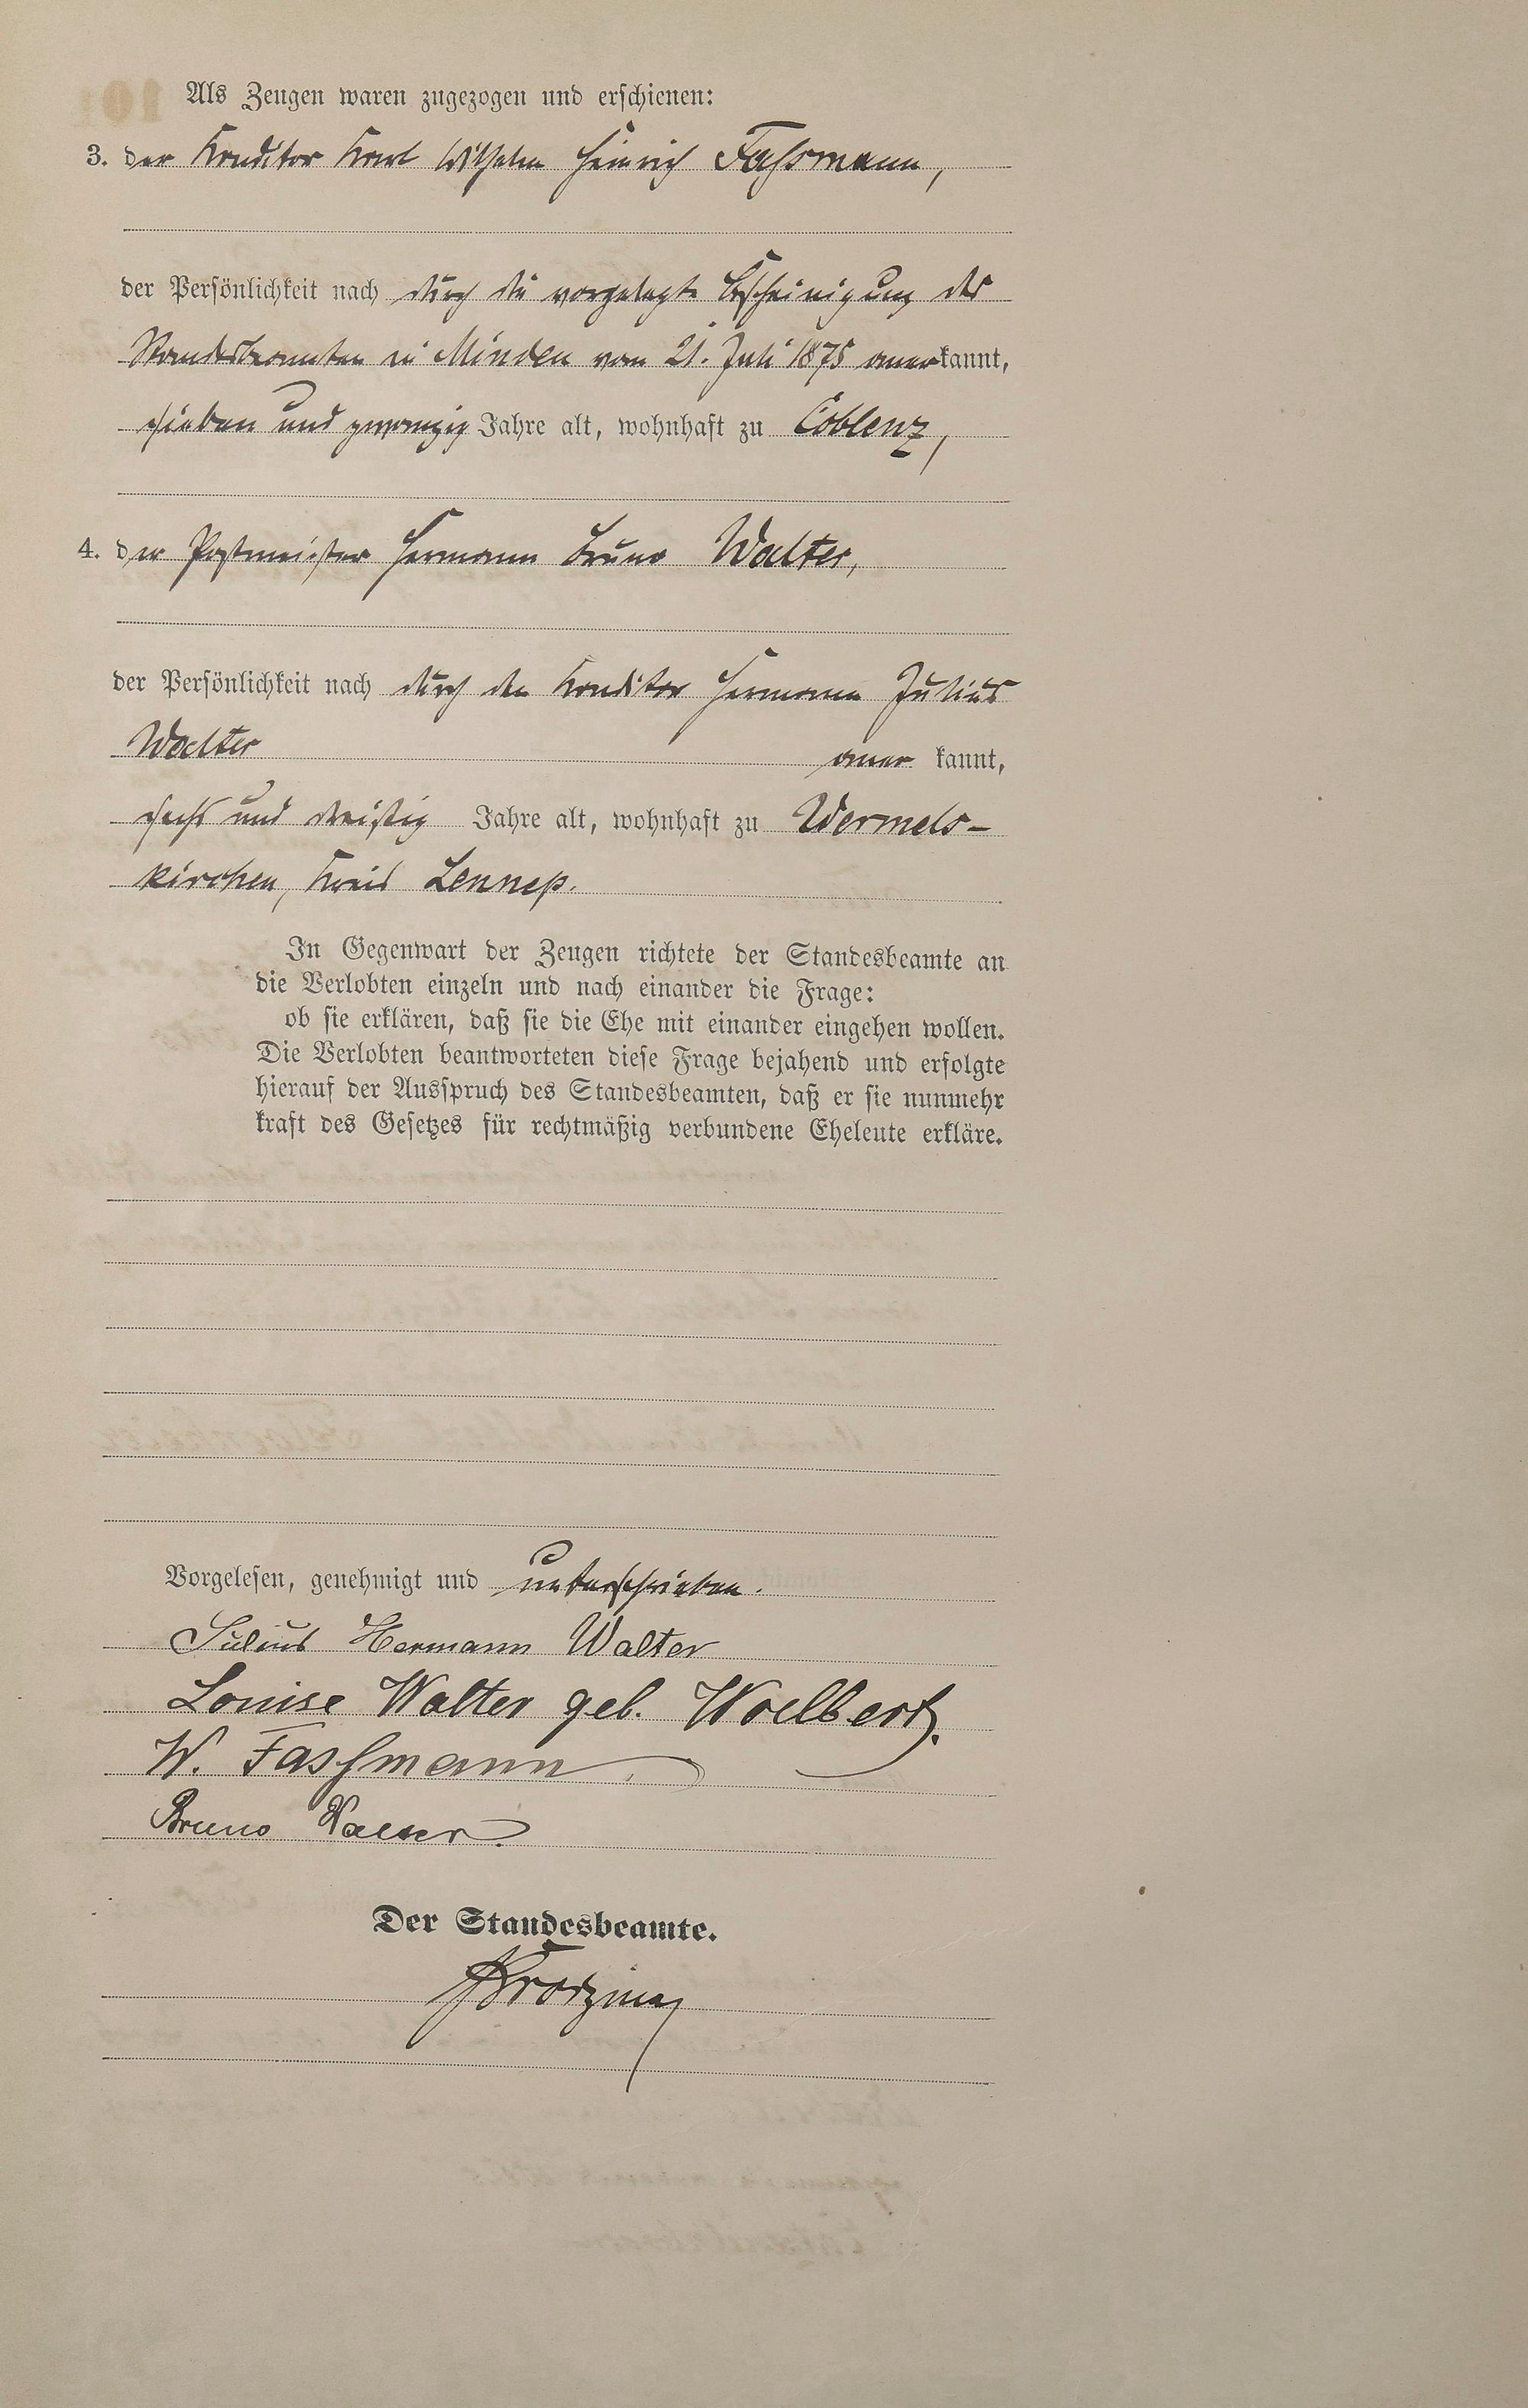 Als Zeugen waren zugezogen und erschienen:
3. der Konditor Karl Wilhelm Heinrich Faßmann,
der Persönlichkeit nach durch die vorgelegte Bescheinigung des
Standesbeamten in Minden vom 21. Juli 1875 anerkannt,
sieben und zwanzig Jahre alt, wohnhaft zu Coblenz,
4. der Postmeister Hermann Bruno Walter,
der Persönlichkeit nach durch den Konditor Hermann Julius
Walter anerkannt,
sechs und dreißig Jahre alt, wohnhaft zu Wermels-
kirchen, Kreis Lennep.
In Gegenwart der Zeugen richtete der Standesbeamte an
die Verlobten einzeln und nach einander die Frage:
ob sie erklären, daß sie die Ehe mit einander eingehen wollen.
Die Verlobten beantworteten diese Frage bejahend und erfolgte
hierauf der Ausspruch des Standesbeamten, daß er sie nunmehr
kraft des Gesetzes für rechtmäßig verbundene Eheleute erkläre.
Vorgelesen, genehmigt und unterschrieben.
Julius Hermann Walter
Louise Walter geb. Woelbert.
W. Faßmann.
Bruno Walter.
Der Standesbeamte.